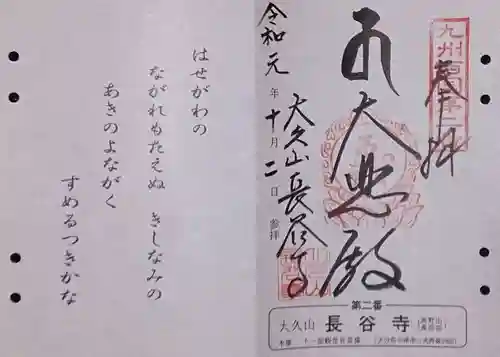 九州西国第二
奉拝
大悲殿
大久山長谷寺
令和元年十月二日参拝
第二番
大久山 長谷寺
本尊 十一面観世音菩薩
はせがわの
ながれもたえぬ きしなみの
あきのよながく
すめるつきかな